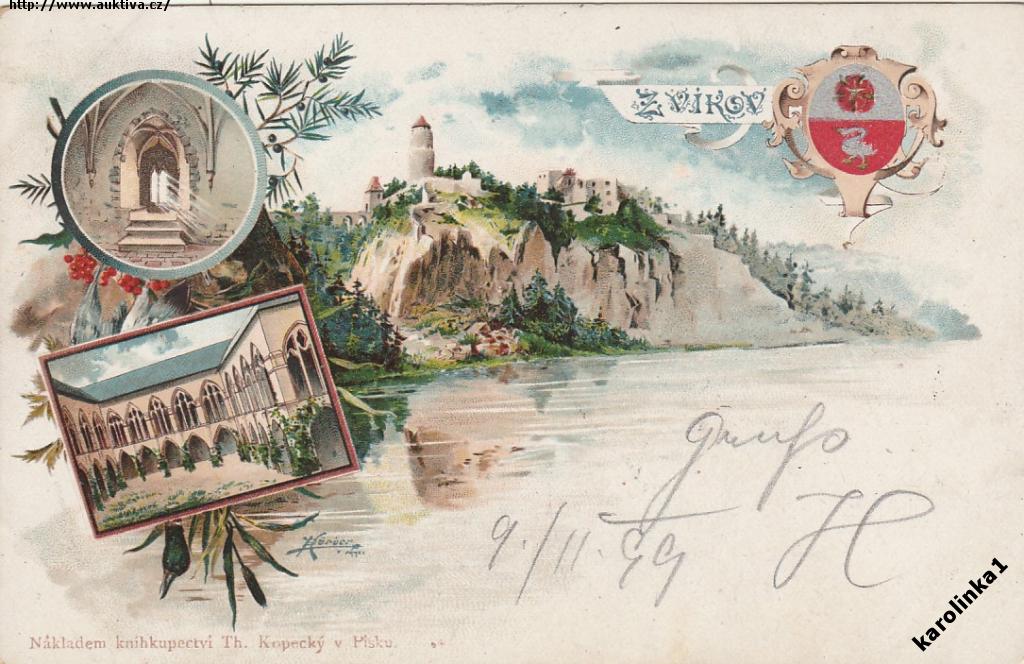 http://www.auktiva.cz/
ZVÍKOV
9./11.99
H
Nákladem knihkupectví Th. Kopecký v Písku.
karolinka1